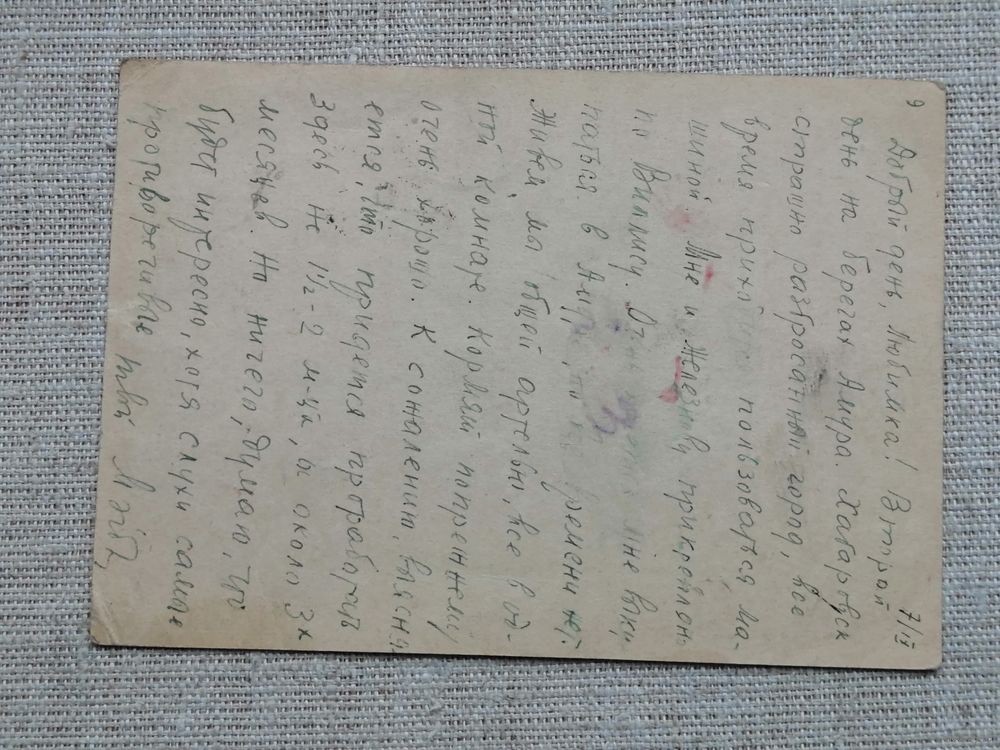 9
7/IX
Добрый день, Любимка! Второй
день на берегах Амура. Хабаровск
страшно разбросанный город, все
время приходится пользоваться ма-
шиной. Мне и Железнову прикреплен
по Виллису. Очень мне выку-
паться в Амуре, но времени нет.
Живем мы общей артелью, все в од-
ной комнате. Кормят по прежнему
очень хорошо. К сожалению, выясня-
ется, что придется проработать
здесь не 1½-2 м-ца, а около 3х
месяцев. Но ничего, думаю, что
будет интересно, хотя слухи самые
противоречивые твой